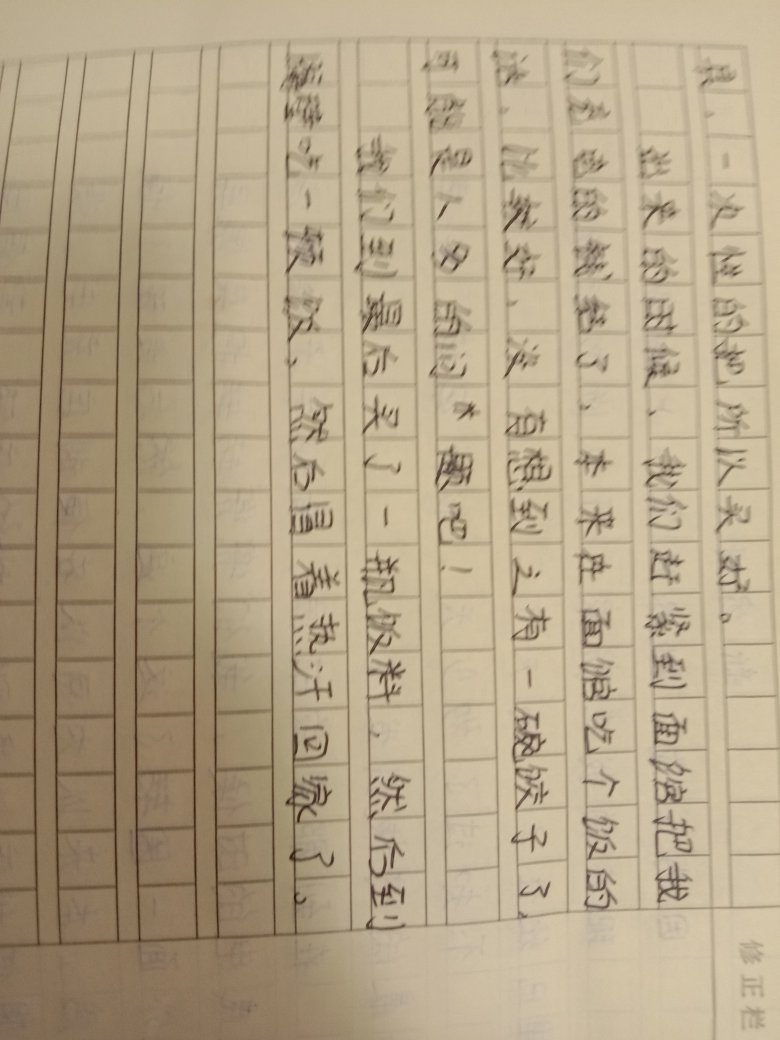 具，一次性的把，所以买好。
出来的时候，我们赶紧到面馆把我
们充电的钱给了，本来在面馆吃个饭的
法，比较好，没有想到之有一碗饺子了，
可能是人多的问题吧！
我们到最后买了一瓶饭料，然后到
吃一顿饭，然后冒着热汗回家了。
修正栏